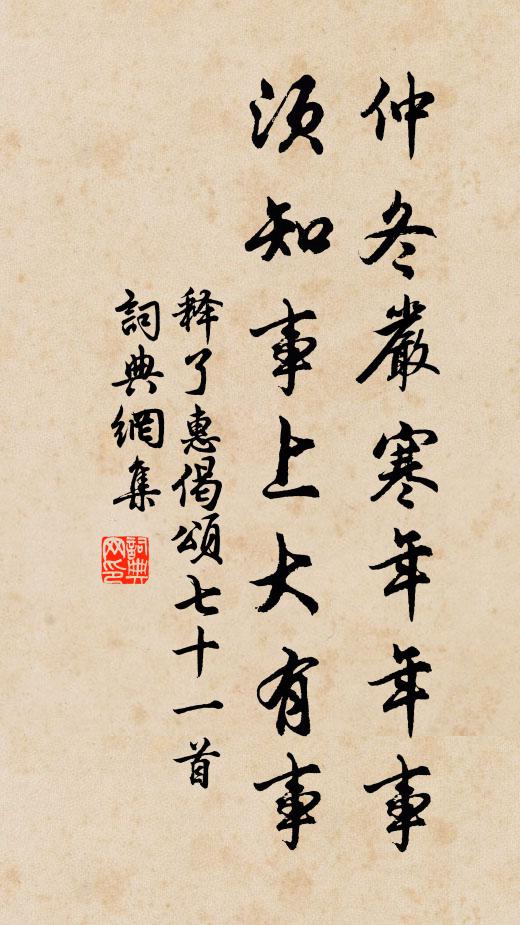 仲冬嚴寒年年事
須知事上大有事
释了惠偈頌七十一首
詞典網集
詞典
网印